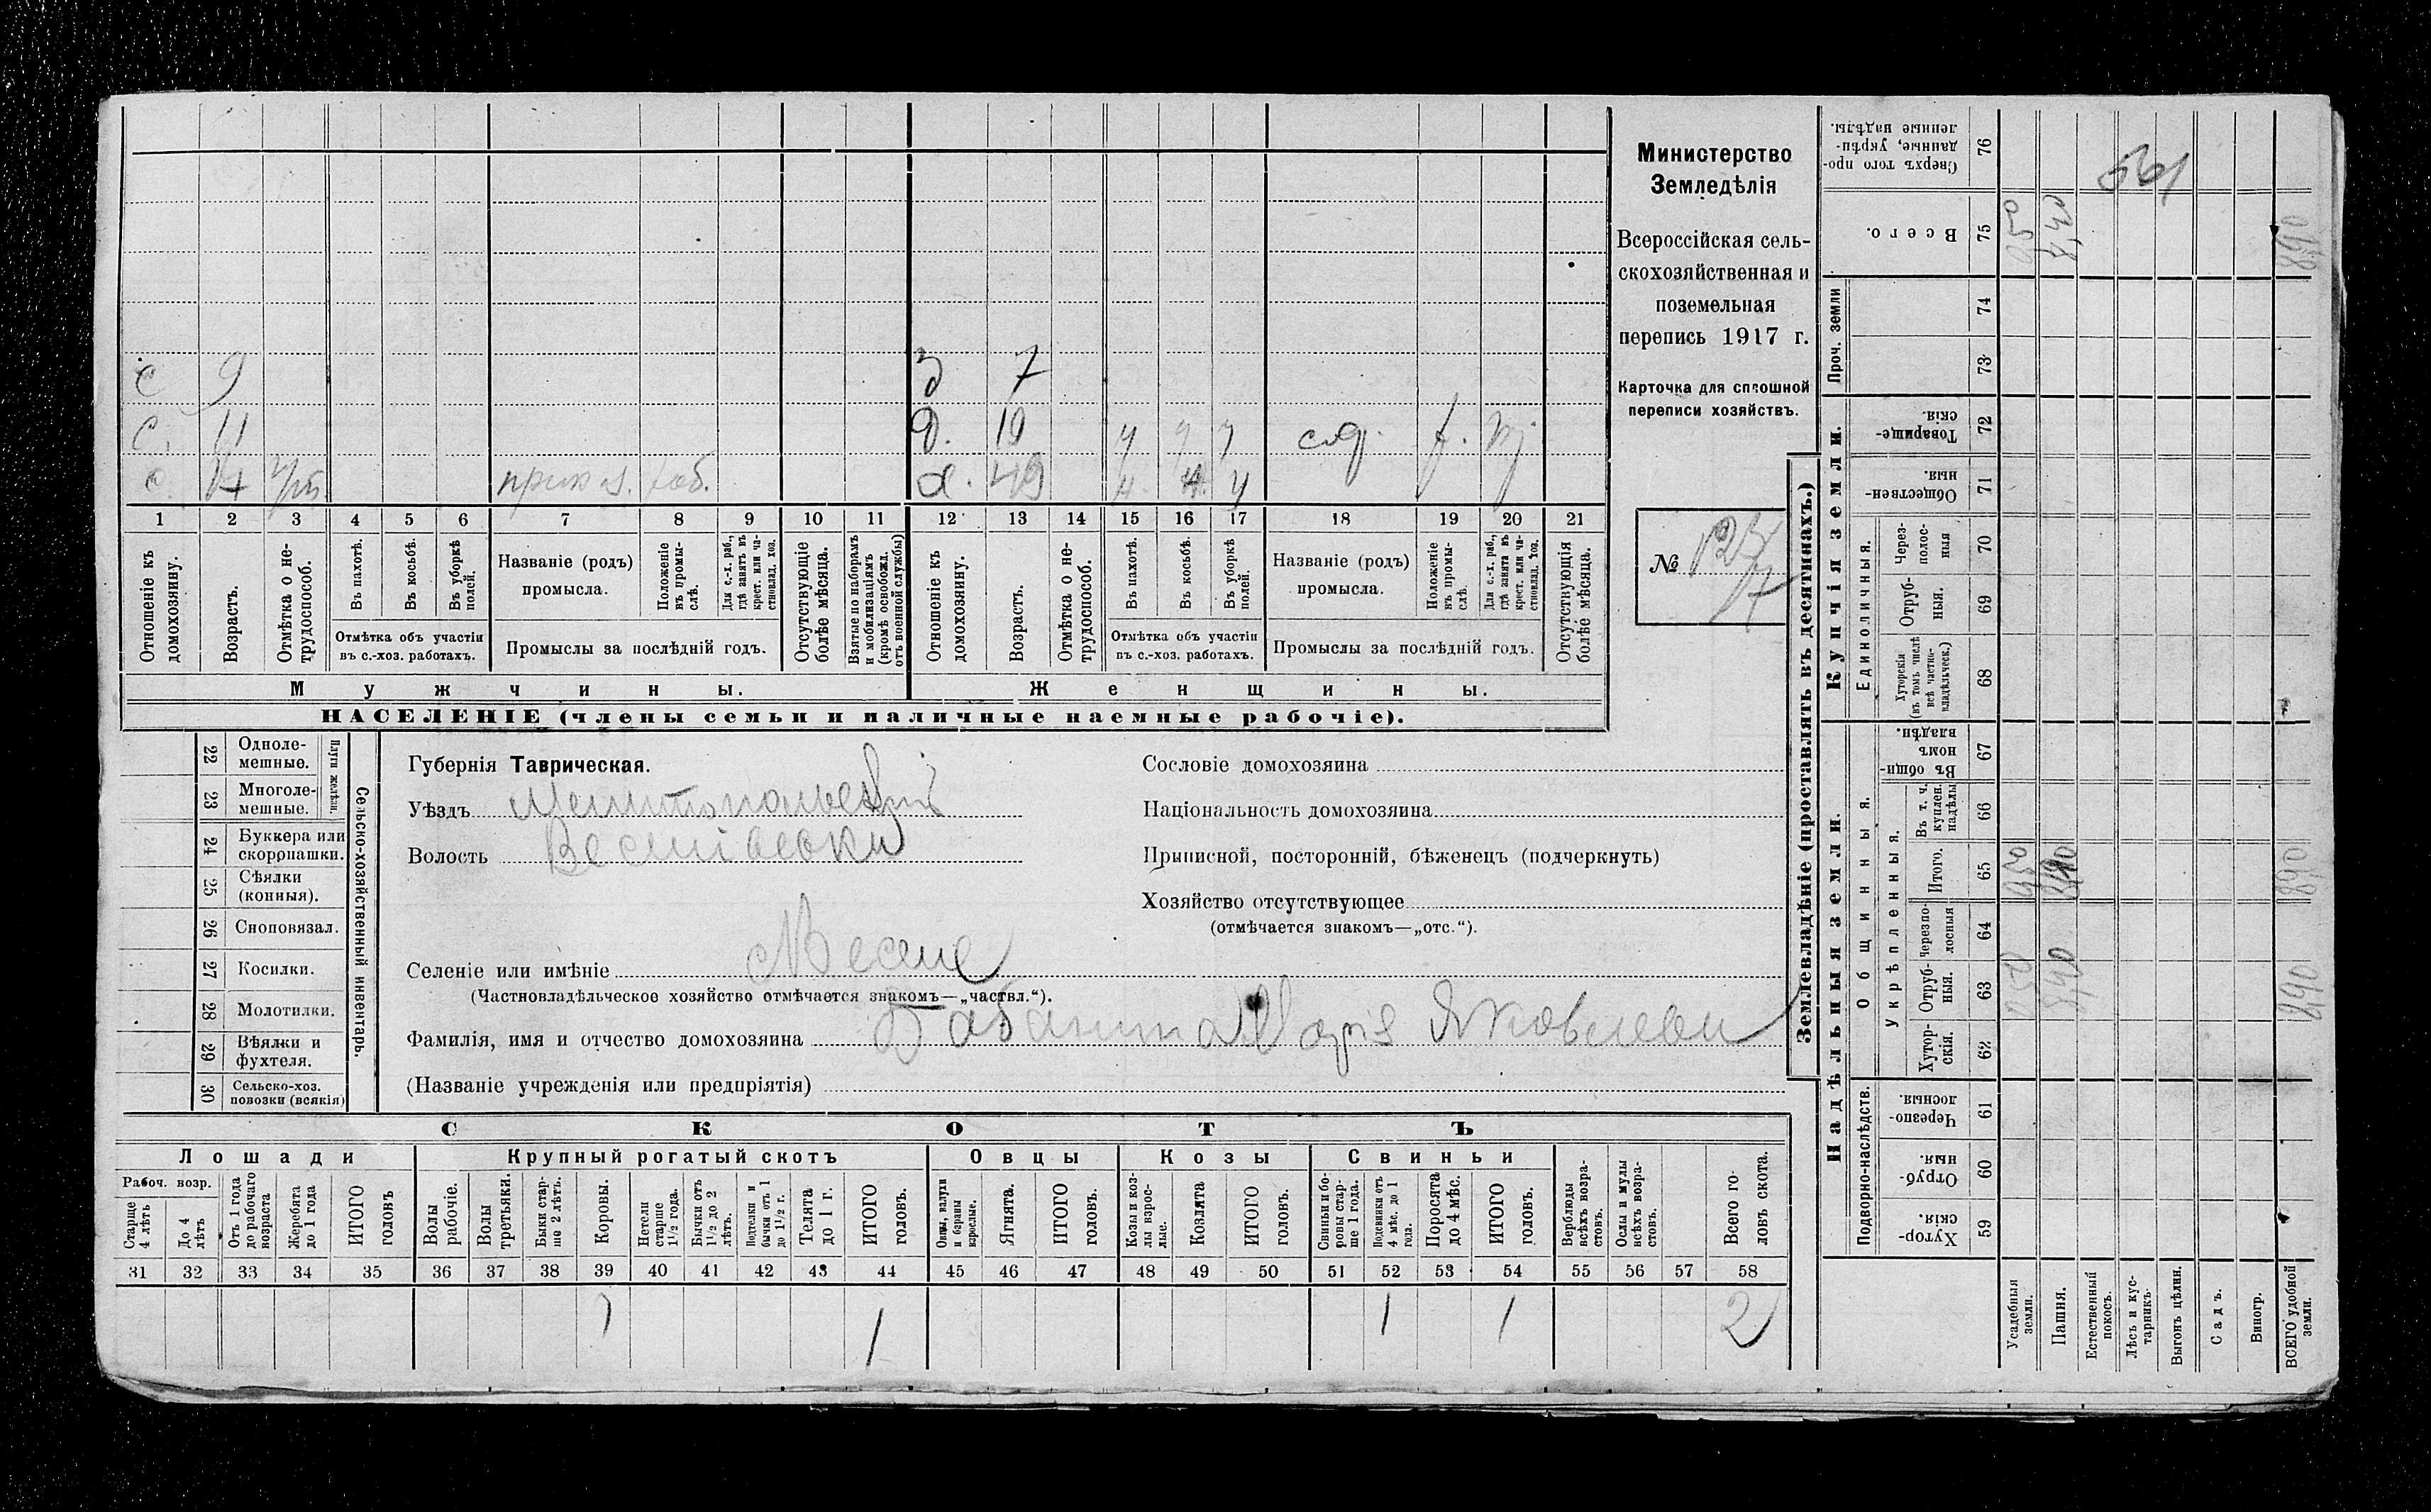 Министерство
Земледѣлія
Всероссійская сель-
скохозяйственная и
поземельная
перепись 1917 г.
Карточка для сплошной
переписи хозяйствъ.
№ 127
17
с 9
З 7
с. 11
д. 19 ч ч ч
с. 49 ч
1 2 3 4 5 6 7 8 9 10 11 12 13 14 15 16 17 18 19 20 21
Отношеніе къ домохозяину.
Возрастъ.
Отмѣтка о не-трудоспособ.
Въ пахотѣ.
Въ косьбѣ.
Въ уборкѣ полей.
Отмѣтка объ участіи въ с.-хоз. работахъ.
Названіе (родъ) промысла.
Положеніе въ промы-слѣ.
Для с.-х. раб., гдѣ занятъ въ крест. или ча-стновлад. хоз.
Промыслы за послѣдній годъ.
Отсутствующіе болѣе мѣсяца.
Взятые по наборамъ и мобилизаціямъ (кромѣ освобожд. отъ военной службы)
Отношеніе къ домохозяину.
Возрастъ.
Отмѣтка о не-трудоспособ.
Въ пахотѣ.
Въ косьбѣ.
Въ уборкѣ полей.
Отмѣтка объ участіи въ с.-хоз. работахъ.
Названіе (родъ) промысла.
Положеніе въ промы-слѣ.
Для с.-х. раб., гдѣ занята въ крест. или ча-стновлад. хоз.
Промыслы за послѣдній годъ.
Отсутствующія болѣе мѣсяца.
Мужчины.
Женщины.
НАСЕЛЕНІЕ (члены семьи и наличные наемные рабочіе).
22 Одноле-мешные.
23 Многоле-мешные.
Плуги желѣзн.
24 Буккера или скоропашки.
25 Сѣялки (конныя).
26 Сноповязал.
27 Косилки.
28 Молотилки.
29 Вѣялки и фухтеля.
30 Сельско-хоз. повозки (всякія)
Сельско-хозяйственный инвентарь.
Губернія Таврическая.
Уѣздъ Мелитопольскій
Волость
Селеніе или имѣніе Весел
(Частновладѣльческое хозяйство отмѣчается знакомъ—„частвл.“).
Фамилія, имя и отчество домохозяина Марія Яковлевн
(Названіе учрежденія или предпріятія)
Сословіе домохозяина
Національность домохозяина
Приписной, посторонній, бѣженецъ (подчеркнуть)
Хозяйство отсутствующее
(отмѣчается знакомъ—„отс.“).
СКОТЪ
Лошади
Крупный рогатый скотъ
Овцы
Козы
Свиньи
Рабоч. возр.
Старше 4 лѣтъ
До 4 лѣтъ
Отъ 1 года до рабочаго возраста
Жеребята до 1 года
ИТОГО головъ
Волы рабочіе.
Волы третьяки.
Быки стар-ше 2 лѣтъ.
Коровы.
Нетели старше 1½ года.
Бычки отъ 1½ до 2 лѣтъ.
Подтелки и бычки отъ 1 до 1½ г.
Телята до 1 г.
ИТОГО головъ.
Овцы, валухи и бараны взрослые.
Ягнята.
ИТОГО головъ.
Козы и коз-лы взрос-лые.
Козлята
ИТОГО головъ.
Свиньи и бо-ровы стар-ше 1 года.
Подсвинки отъ 4 мѣс. до 1 года.
Поросята до 4 мѣс.
ИТОГО головъ.
Верблюды всѣхъ возра-стовъ.
Ослы и мулы всѣхъ возра-стовъ.
Всего го-ловъ скота.
31 32 33 34 35 36 37 38 39 40 41 42 43 44 45 46 47 48 49 50 51 52 53 54 55 56 57 58
1 1 1 1 2
Землевладѣніе (проставлять въ десятинахъ.)
Надѣльныя земли.
Купчія земли.
Проч. земли
Подворно-наслѣдств.
Общинныя.
Укрѣпленныя.
Единоличныя.
Хутор-скія. 59
Отруб-ныя. 60
Черезпо-лосныя. 61
Хутор-скія. 62
Отруб-ныя. 63
Черезпо-лосныя 64
Итого. 65
Въ т. ч. куплен. надѣлы 66
Въ общи-номъ владѣн. 67
Хуторскія (въ томъ числѣ всѣ частно-владѣльческ.) 68
Отруб-ныя. 69
Через-полос-ныя 70
Обществен-ныя. 71
Товарище-скія. 72
73
74
Всего. 75
Сверхъ того про-данные, укрѣп-ленные надѣлы. 76
Усадебныя земли.
Пашня.
Естественный покосъ.
Лѣсъ и кус-тарникъ.
Выгонъ цѣлин.
Садъ.
Виногр.
ВСЕГО удобной земли.
561